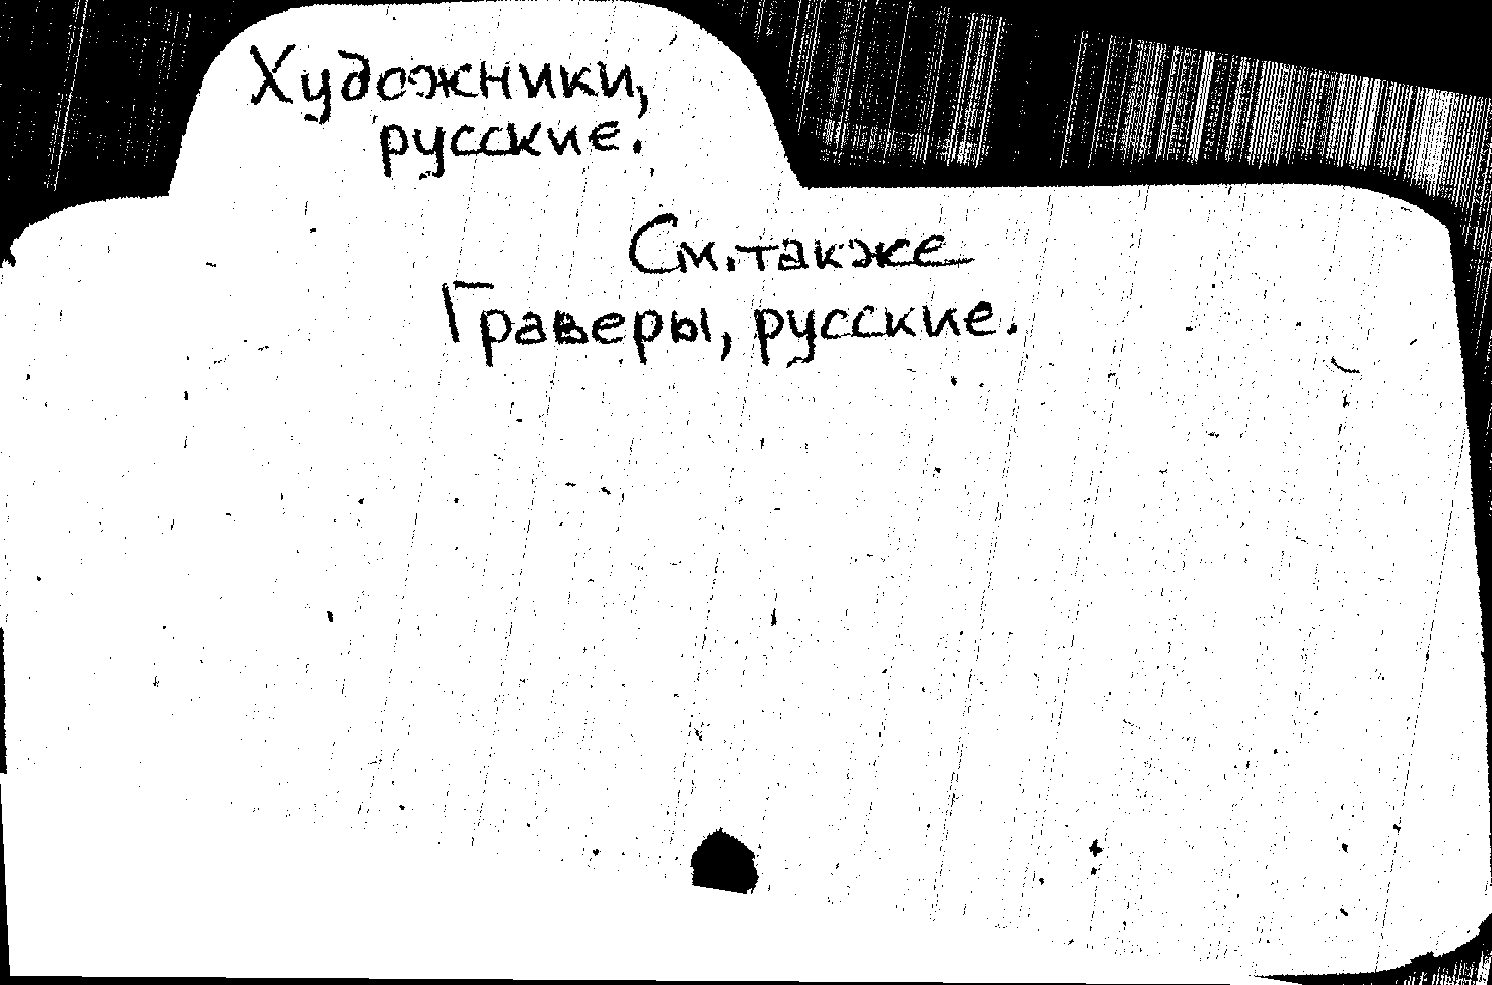 Художники,
русские.
См. также
Граверы, русские.